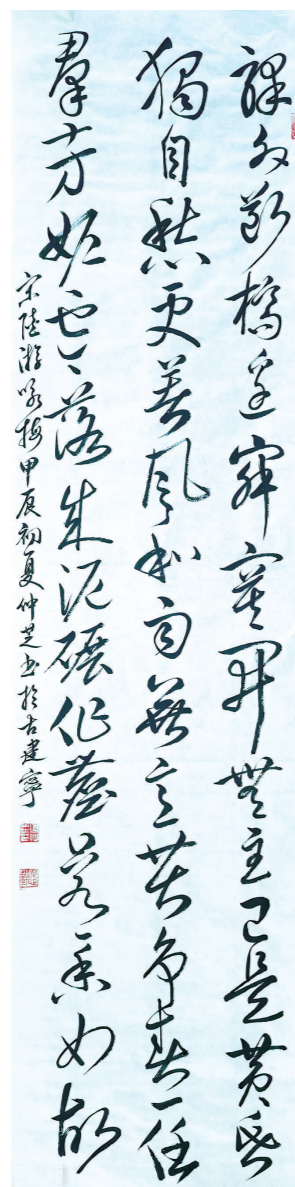 驛外斷橋邊寂寞開無主已是黃昏
獨自愁更著風和雨無意苦爭春一任
羣芳妒零落成泥碾作塵只有香如故
宋陸游咏梅甲辰初夏仲芝书於古建寧